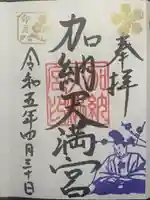 奉拝
加納天満宮
令和五年四月三十日